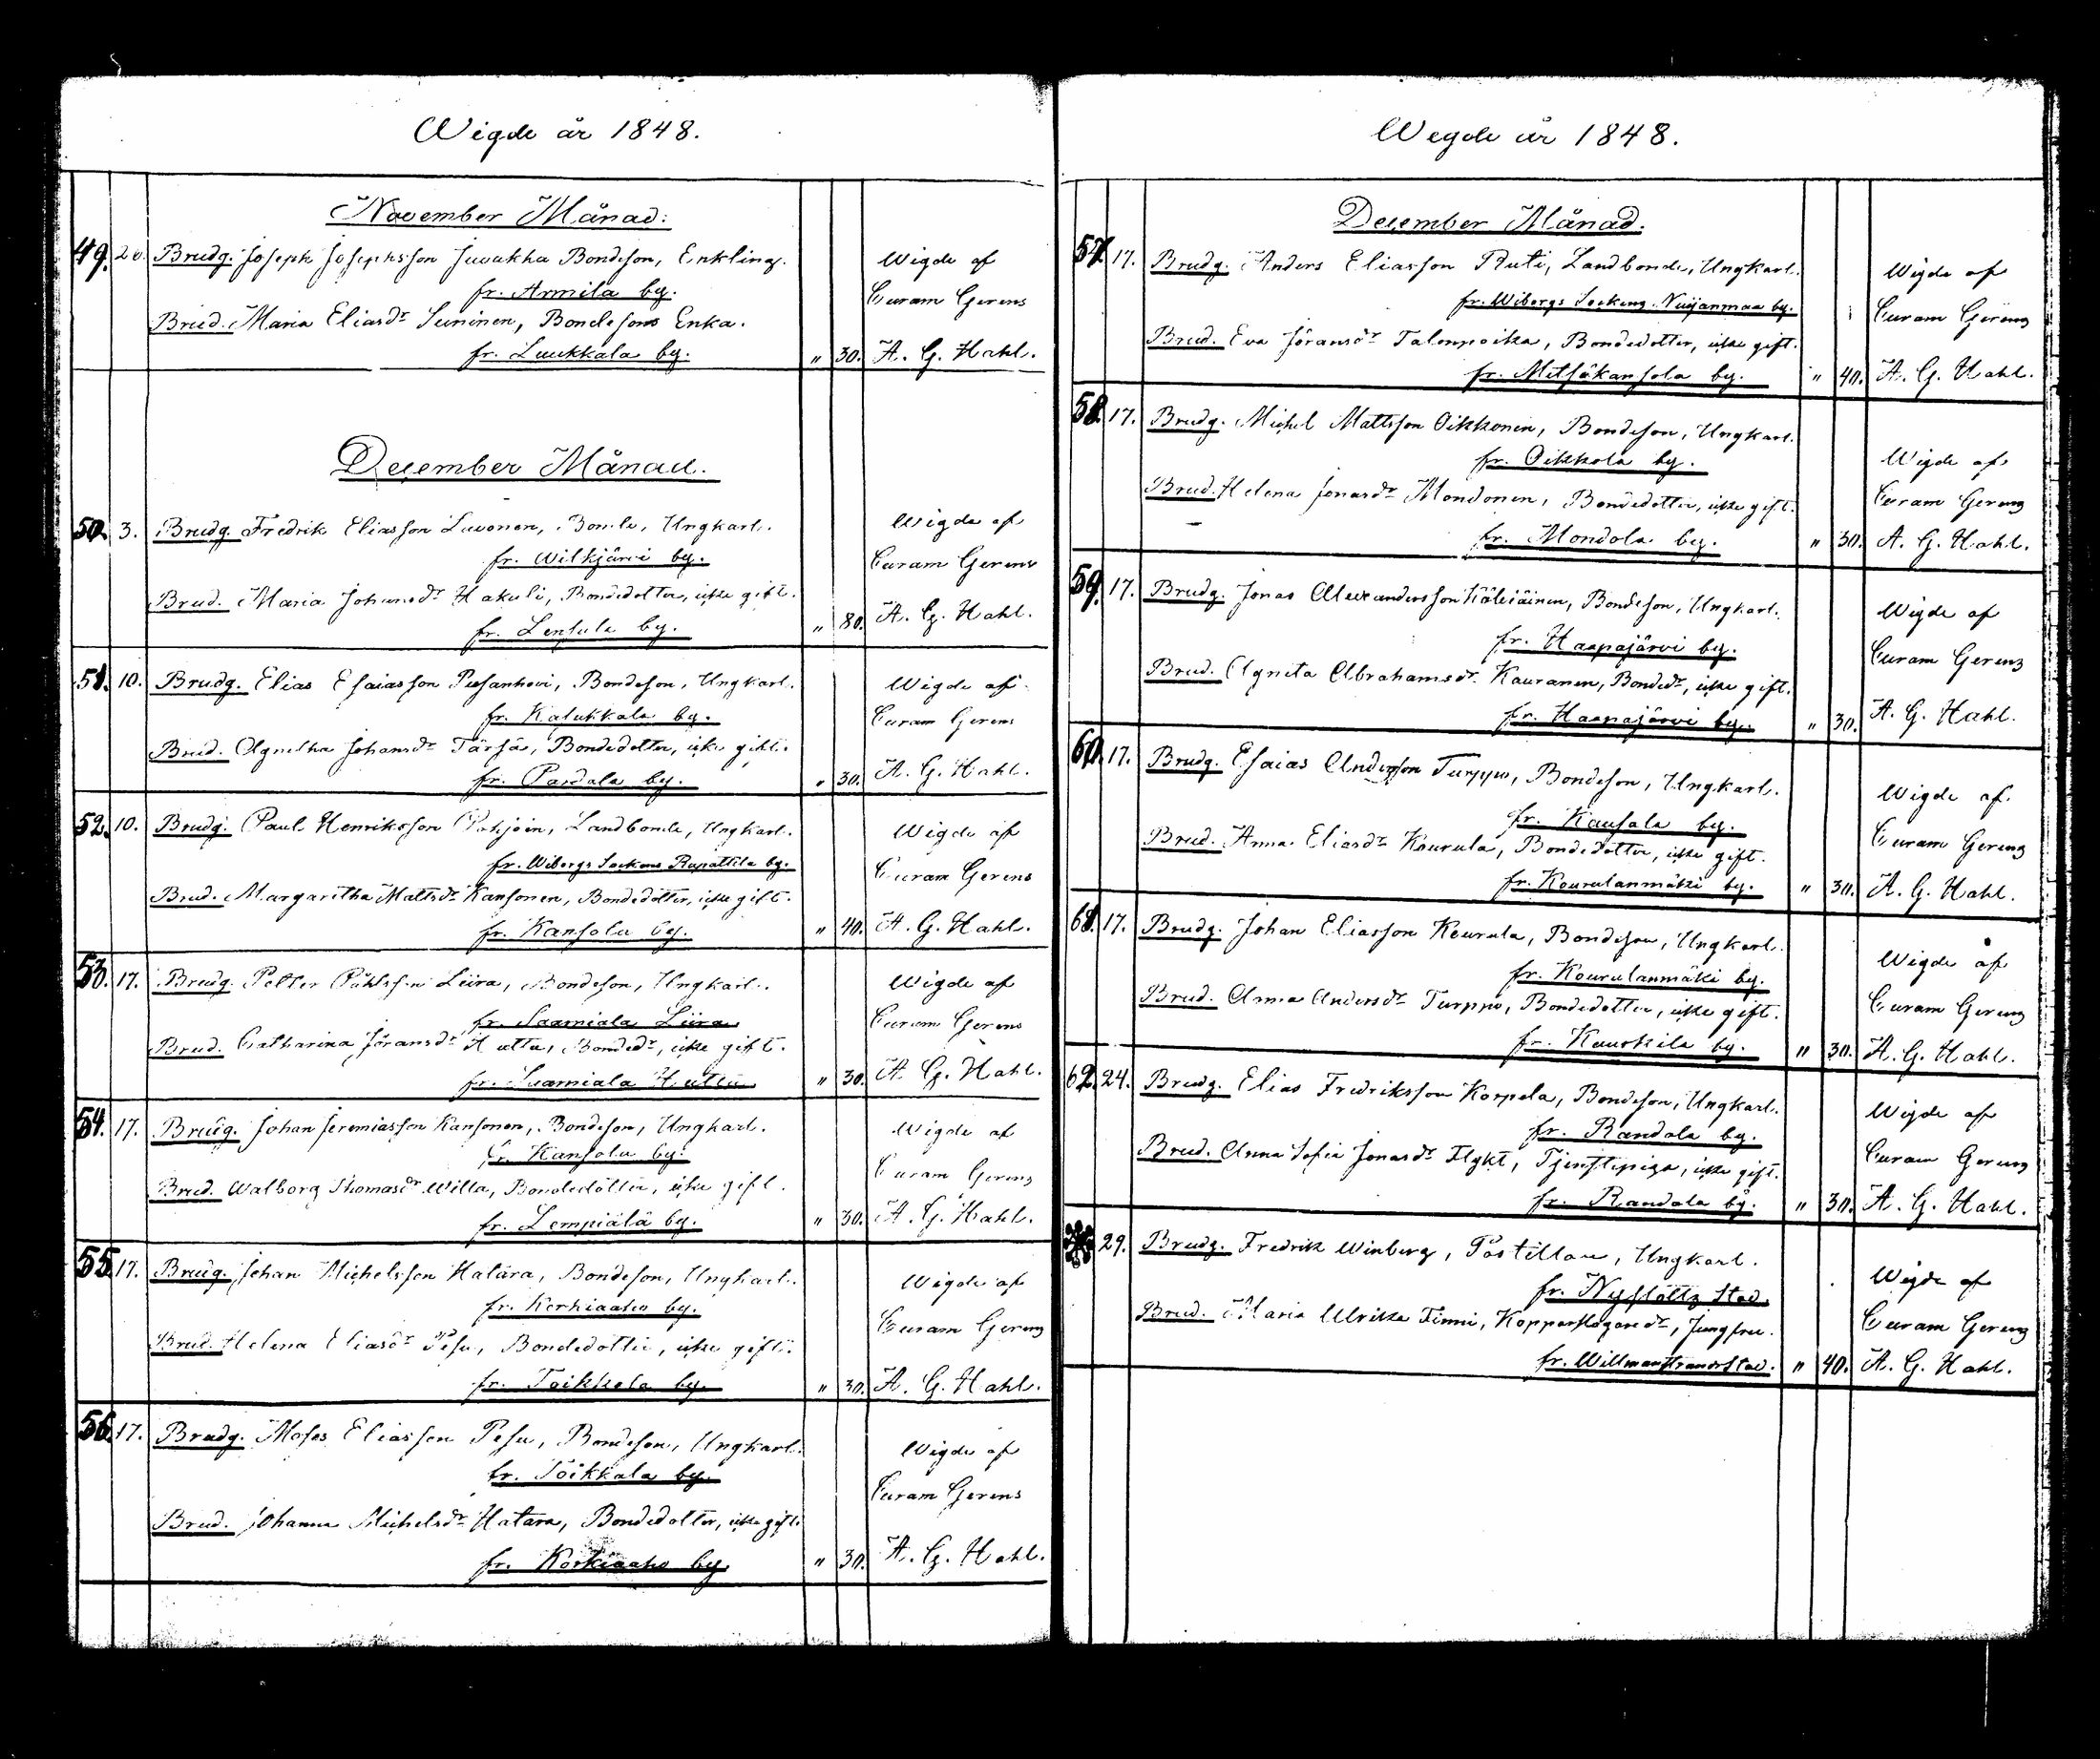 Wigde år 1848.
November Månad.
49. 20. Brudg. Joseph Josephsson Juvakka Bondeson, Enkling.
fr. Armila by.
Brud. Maria Eliasdr Suninen, Bondesons Enka.
fr. Luukkala by. " 30.
Wigde af
Curam Gerens
A. G. Hahl.
December Månad.
50. 3. Brudg. Fredrik Eliasson Luvonen, Bonde, Ungkarl.
fr. Wilkjärvi by.
Brud. Maria Johansdr Hakuli, Bondedotter, icke gift.
fr. Lensula by. " 80.
Wigde af
Curam Gerens
A. G. Hahl.
51. 10. Brudg. Elias Esaiasson Pesanhovi, Bondeson, Ungkarl.
fr. Kalukkala by.
Brud. Agnetha Johansdr Tärsä, Bondedotter, icke gift.
fr. Pardala by. " 30.
Wigde af
Curam Gerens
A. G. Hahl.
52. 10. Brudg. Paul Henriksson Pohjoin, Landbonde, Ungkarl.
fr. Wiborgs Sockens Rapattila by.
Brud. Margaritha Mattsdr Kansonen, Bondedotter, icke gift.
fr. Kansola by. " 40.
Wigde af
Curam Gerens
A. G. Hahl.
53. 17. Brudg. Petter Påhlsson Liira, Bondeson, Ungkarl.
fr. Saamiala Liira
Brud. Catharina Jöransdr Huttu, Bondedr, icke gift.
fr. Suamiala Huttu " 30.
Wigde af
Curam Gerens
A. G. Hahl.
54. 17. Brudg. Johan Jeremiasson Kansonen, Bondeson, Ungkarl.
fr. Kansola by.
Brud. Walborg Thomasdr Willa, Bondedotter, icke gift.
fr. Lempiälä by. " 30.
Wigde af
Curam Gerens
A. G. Hahl.
55. 17. Brudg. Johan Michelsson Hatara, Bondeson, Ungkarl.
fr. Korkiaaho by.
Brud. Helena Eliasdr Pesu, Bondedotter, icke gift.
fr. Toikkala by. " 30.
Wigde af
Curam Gerens
A. G. Hahl.
56. 17. Brudg. Moses Eliasson Pesu, Bondeson, Ungkarl.
fr. Toikkala by.
Brud. Johanna Michelsdr Hatara, Bondedotter, icke gift.
fr. Korkiaaho by. " 30.
Wigde af
Curam Gerens
A. G. Hahl.
Wigde år 1848.
December Månad.
57. 17. Brudg. Anders Eliasson Ruti, Landbonde, Ungkarl.
fr. Wiborgs Sockens Nuijanmaa by.
Brud. Eva Jöransdr Talonpoika, Bondedotter, icke gift.
fr. Metsäkansola by. " 40.
Wigde af
Curam Gerens
A. G. Hahl.
58. 17. Brudg. Michel Mattsson Oikkonen, Bondeson, Ungkarl.
fr. Oikkola by.
Brud. Helena Jonasdr Mondonen, Bondedotter, icke gift.
fr. Mondola by. " 30.
Wigde af
Curam Gerens
A. G. Hahl.
59. 17. Brudg. Jonas Alexandersson Käleiäinen, Bondeson, Ungkarl.
fr. Haapajärvi by.
Brud. Agneta Abrahamsdr Kauranen, Bondedr, icke gift.
fr. Haapajärvi by. " 30.
Wigde af
Curam Gerens
A. G. Hahl.
60. 17. Brudg. Esaias Andersson Turppo, Bondeson, Ungkarl.
fr. Kausala by.
Brud. Anna Eliasdr Kourula, Bondedotter, icke gift.
fr. Kourulanmäki by. " 30.
Wigde af
Curam Gerens
A. G. Hahl.
61. 17. Brudg. Johan Eliasson Kourula, Bondeson, Ungkarl.
fr. Kourulanmäki by.
Brud. Anna Andersdr Turppo, Bondedotter, icke gift.
fr. Kauskila by. " 30.
Wigde af
Curam Gerens
A. G. Hahl.
62. 24. Brudg. Elias Fredriksson Korpela, Bondeson, Ungkarl.
fr. Randala by.
Brud. Anna Sofia Jonasdr Flykt, Tjenstepiga, icke gift.
fr. Randala by. " 30.
Wigde af
Curam Gerens
A. G. Hahl.
29. Brudg. Fredrik Winberg, Postillon, Ungkarl.
fr. Nyslottz Stad.
Brud. Maria Ulrika Finni, Kopparslagaredr, Jungfru.
fr. Willmanstrands Stad. " 40.
Wigde af
Curam Gerens
A. G. Hahl.